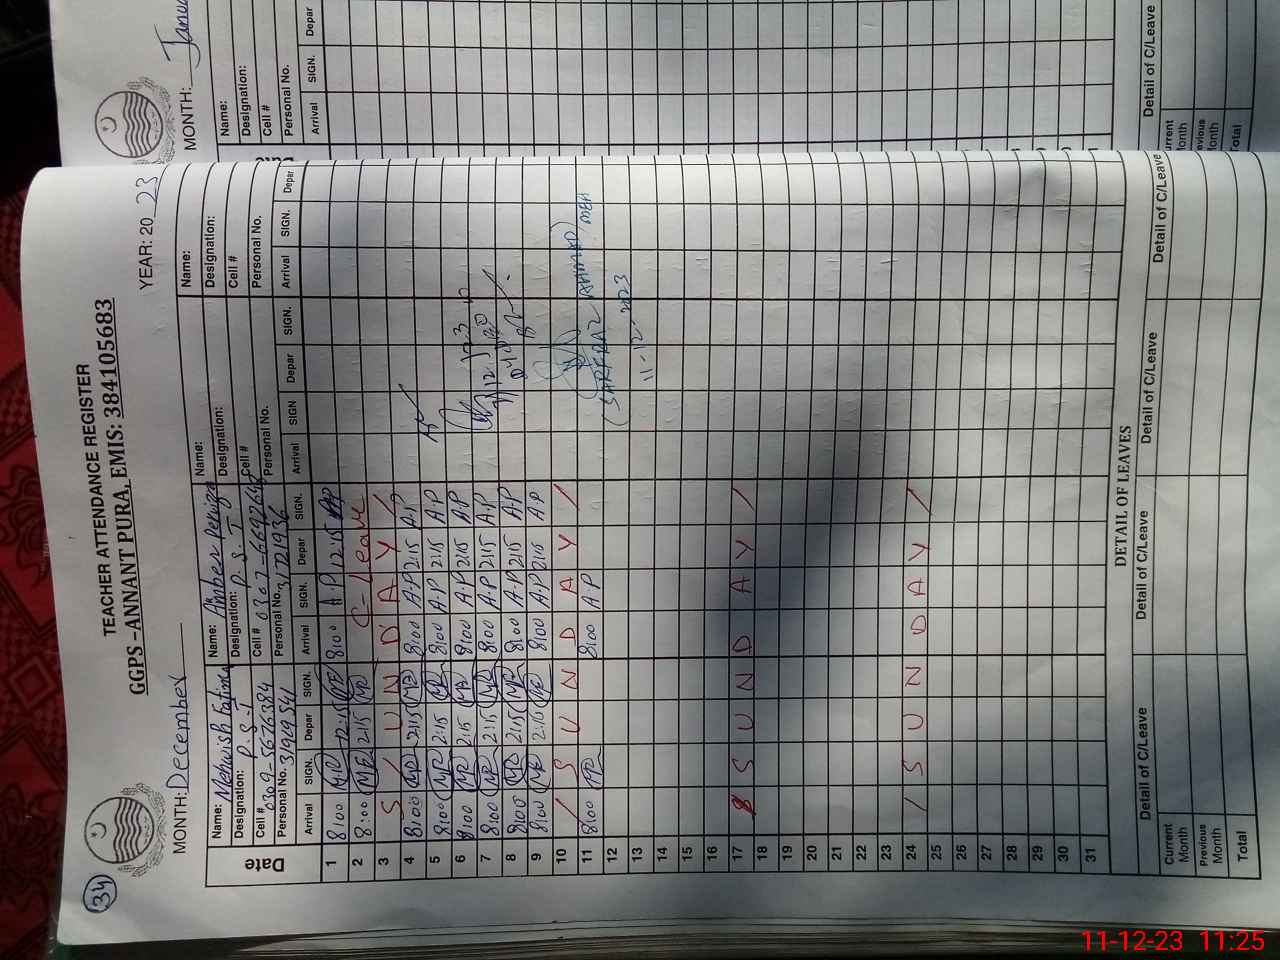 34
TEACHER ATTENDANCE REGISTER
GGPS –ANNANT PURA, EMIS: 384105683
MONTH: December YEAR: 2023
Name: Mehwish Fatima Name: Amber Name: Name:
Designation: P.S.T Designation: P.S.T Designation: Designation:
Cell # 0309-5676384 Cell # 0307- Cell # Cell #
Personal No. Personal No. Personal No. Personal No.
Date Arrival SIGN. Depar SIGN. Arrival SIGN. Depar SIGN. Arrival SIGN Depar SIGN. Arrival SIGN. Depar
1 8:00 12:15 8:00 A.P 12:15 AP
2 8:00 2:15 C-Leave
3 S U N D A Y /
4 8:00 2:15 8:00 A.P 2:15 A.P
5 8:00 2:15 8:00 A.P 2:15 A.P
6 8:00 2:15 8:00 A.P 2:15 A.P
7 8:00 2:15 8:00 A.P 2:15 A.P
8 8:00 2:15 8:00 A.P 2:15 A.P
9 8:00 2:15 8:00 A.P 2:15 A.P
10 / S U N D A Y /
11 8:00 8:00 A.P
12
13
14
15
16
17 S U N D A Y /
18
19
20
21
22
23
24 / S U N D A Y /
25
26
27
28
29
30
31
(SARFRAZ AHMAD) MEA
11-12-2023
DETAIL OF LEAVES
Detail of C/Leave Detail of C/Leave Detail of C/Leave Detail of C/Leave
Current Month
Previous Month
Total
MONTH: Janu
Name:
Designation:
Cell #
Personal No.
Date Arrival SIGN. Depar
Detail of C/Leave
Month
Month
Total
11-12-23 11:25